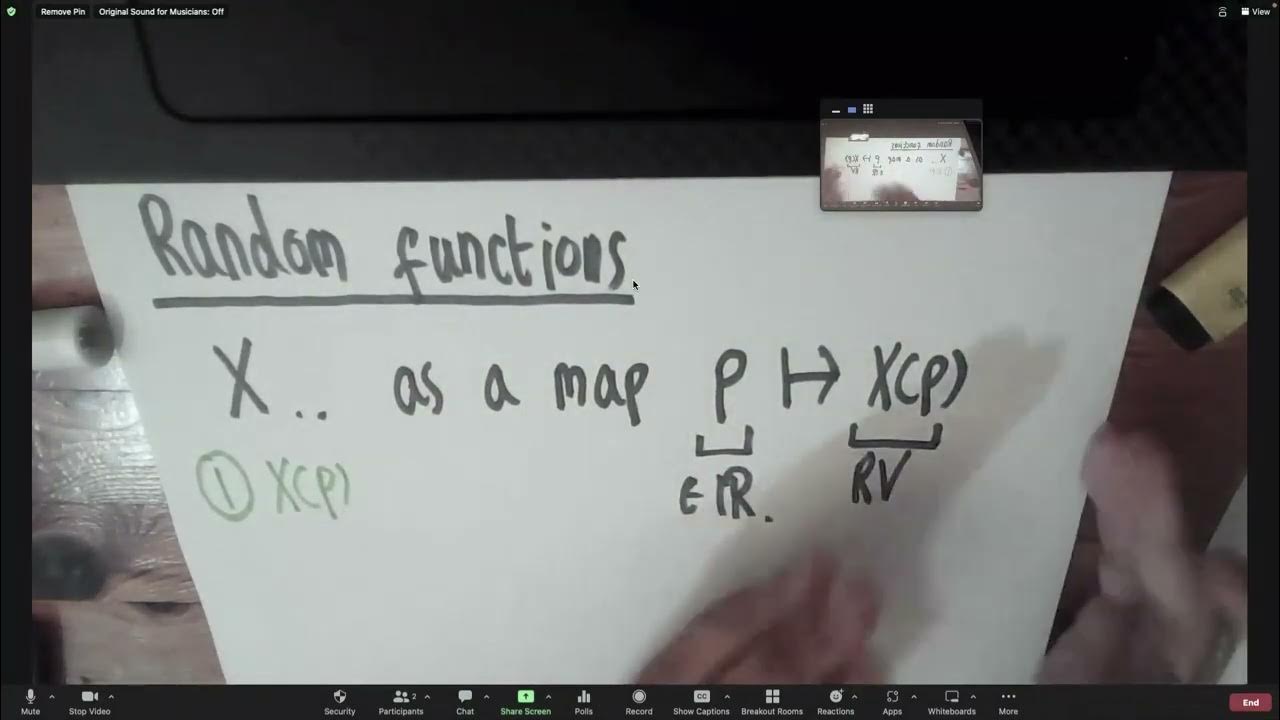 Remove Pin Original Sound for Musicians: Off View
Random functions
X .. as a map p ↦ X(p)
∈ IR. RV
① X(p)
Mute Stop Video Security Participants 2 Chat Share Screen Polls Record Show Captions Breakout Rooms Reactions Apps Whiteboards More End